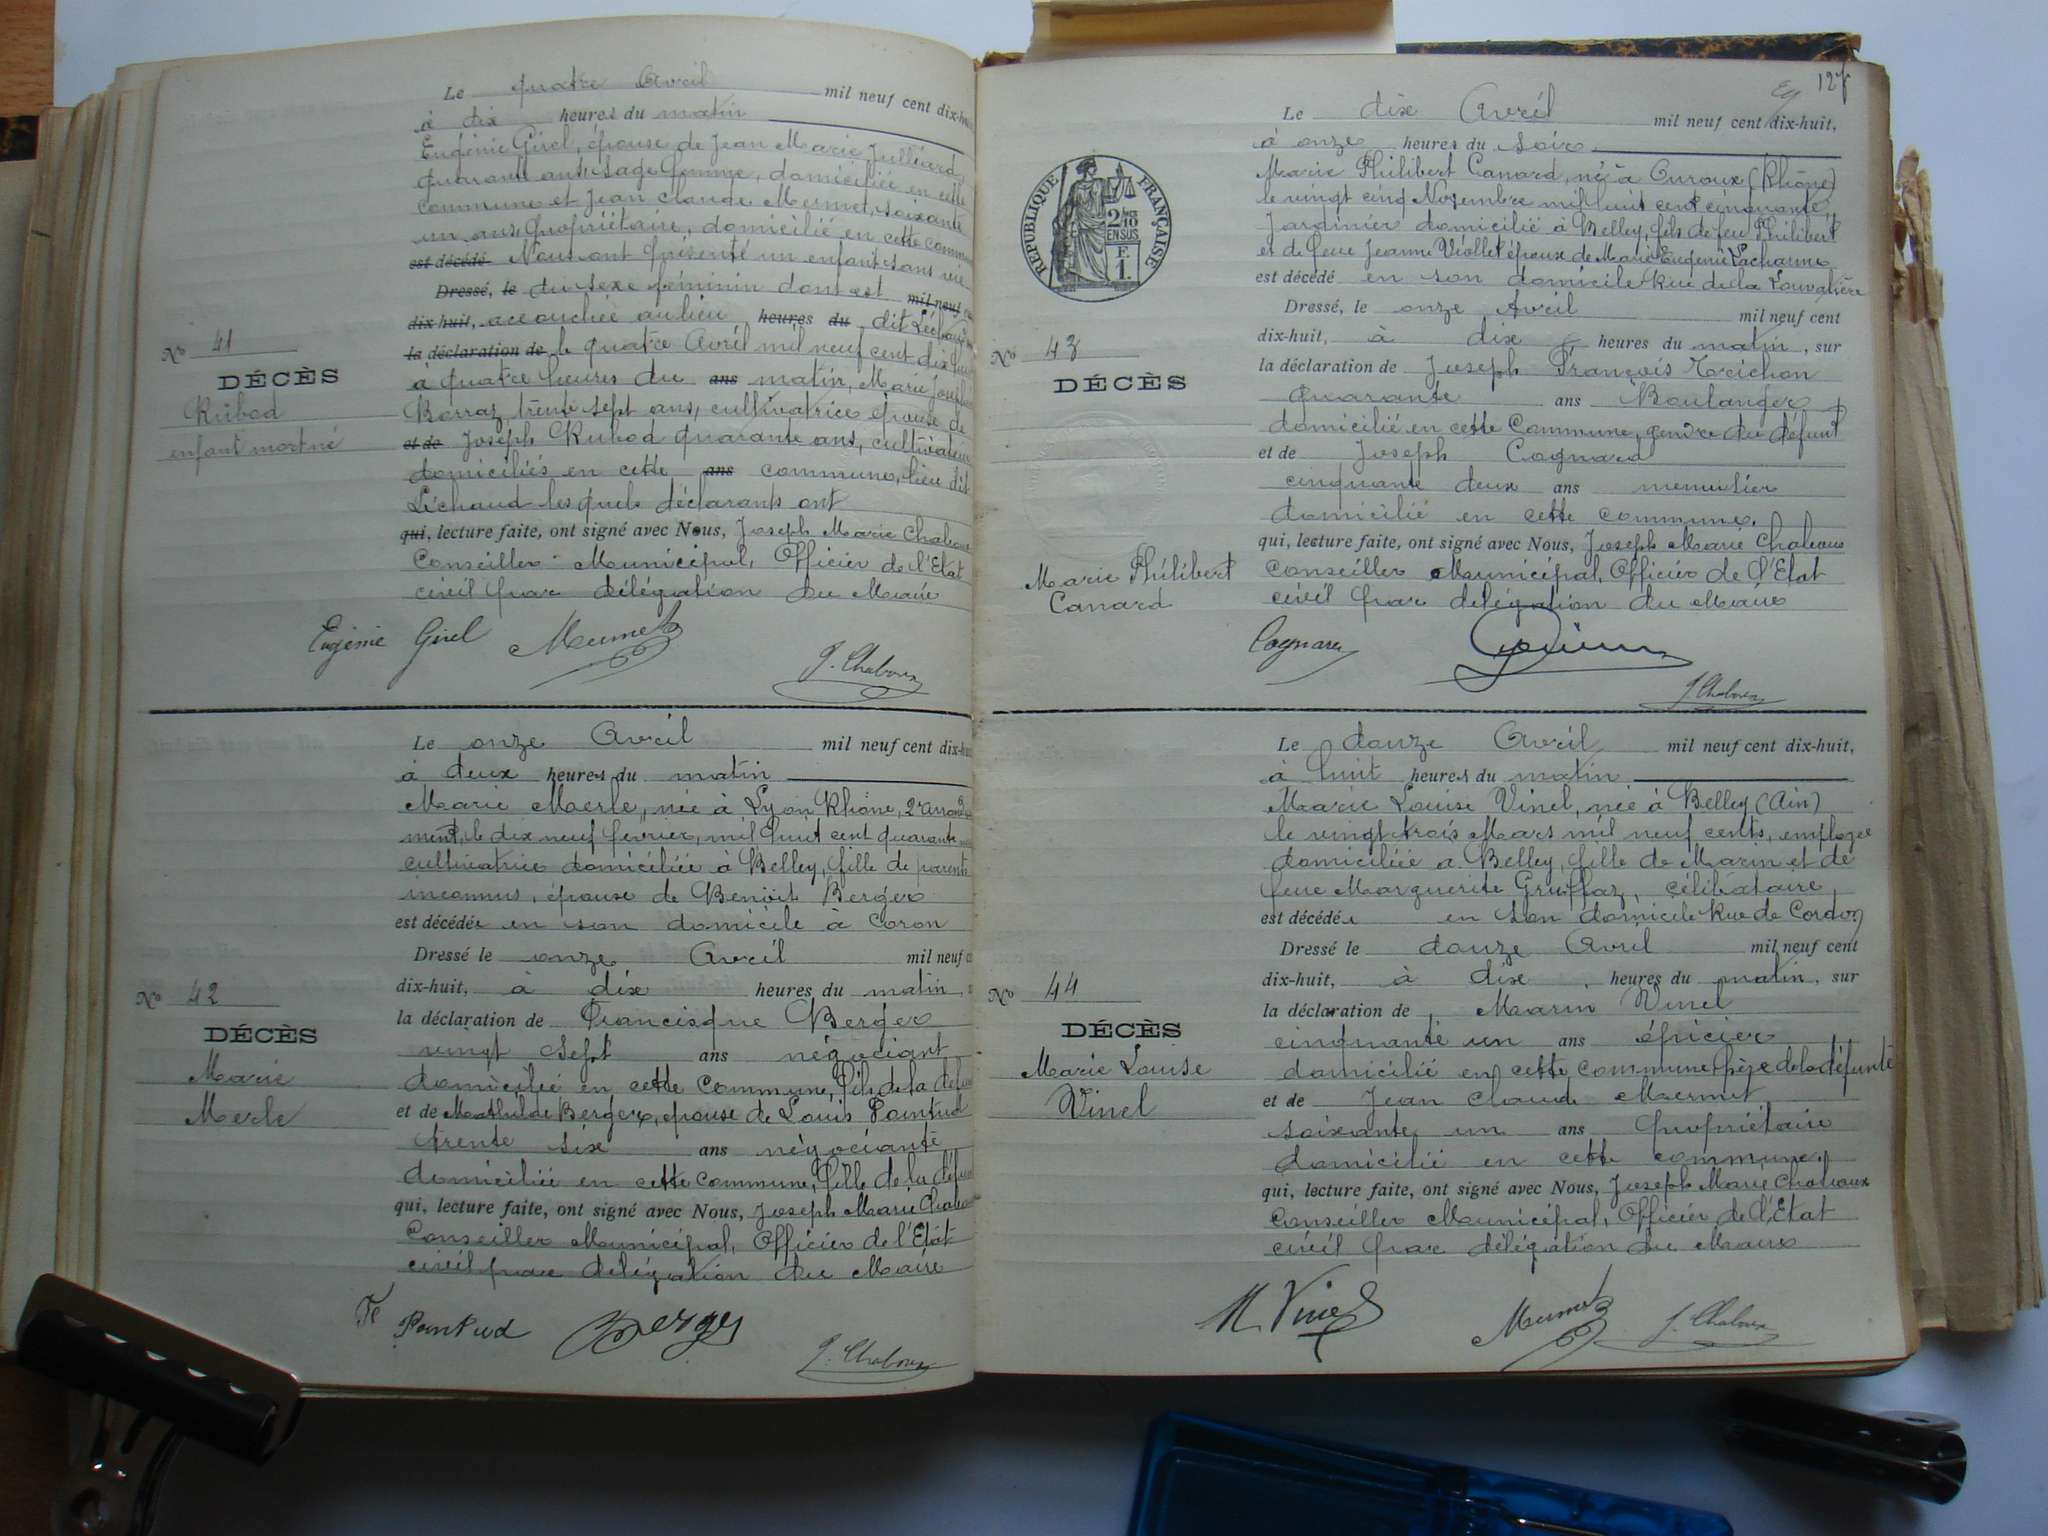 Le quatre Avril mil neuf cent dix-hu
à dix heures du matin
Eugénie Girel, épouse de Jean Marie Julliard,
quarante ans Sage femme, domiciliée en cette
commune et Jean Claude Mermet, soixante
un ans propriétaire, domicilié en cette commune
est décédé Nous ont présenté un enfant sans vie
Dressé, le du sexe féminin dont est mil neuf
dix-huit, accouchée au lieu heures du dit Léchaud
la déclaration de le quatre Avril mil neuf cent dix huit
à quatre heures du ans matin, Marie Joseph
Borraz, trente sept ans, cultivatrice épouse de
et de Joseph Rubod quarante ans, cultivateur
domiciliés en cette ans commune, lieu dit
Léchaud lesquels déclarants ont
qui, lecture faite, ont signé avec Nous, Joseph Marie Chaboux
Conseiller Municipal, Officier de l'Etat
civil par délégation du Maire
No 41
DÉCÈS
Rubod
enfant mort né
Eugénie Girel Mermet
J. Chaboux
Le onze Avril mil neuf cent dix-hu
à deux heures du matin
Marie Merle, née à Lyon Rhône, 2e arrondisse
ment, le dix neuf février, mil huit cent quarante
cultivatrice domiciliée à Belley, fille de parents
inconnus, épouse de Benoit Berger
est décédée en son domicile à Coron
Dressé le onze Avril mil neuf c
dix-huit, à dix heures du matin,
la déclaration de Francisque Berger
vingt sept ans négociant
domicilié en cette commune, fils de la défun
et de Mathilde Berger, épouse de Louis Pointud
trente six ans négociante
domiciliée en cette commune, fille de la défun
qui, lecture faite, ont signé avec Nous, Joseph Marie Chabou
Conseiller Municipal, Officier de l'Etat
civil par délégation du Maire
No 42
DÉCÈS
Marie
Merle
Fe Pointud Berger
J. Chaboux
127
Le dix Avril mil neuf cent dix-huit,
à onze heures du soir
Marie Philibert Canard, né à Ouroux (Rhône)
le vingt cinq Novembre mil huit cent cinquante,
Jardinier domicilié à Belley, fils de feu Philibert
et de feue Jeanne Viollet époux de Marie Eugénie Lacharme
est décédé en son domicile Rue de la Louvatière
Dressé, le onze Avril mil neuf cent
dix-huit, à dix heures du matin, sur
la déclaration de Joseph François Treichon
quarante ans Boulanger
domicilié en cette Commune, gendre du défunt
et de Joseph Cognard
cinquante deux ans menuisier
domicilié en cette commune.
qui, lecture faite, ont signé avec Nous, Joseph Marie Chaboux
Conseiller Municipal, Officier de l'Etat
civil par délégation du Maire
RÉPUBLIQUE FRANÇAISE
2/10
EN SUS
F.
1.
No 43
DÉCÈS
Marie Philibert
Canard
Cognard
J. Chaboux
Le douze Avril mil neuf cent dix-huit,
à huit heures du matin
Marie Louise Vinel, née à Belley (Ain)
le vingt trois Mars mil neuf cents, employée
domiciliée à Belley, fille de Marin et de
feue Marguerite Gruffaz, célibataire,
est décédée en son domicile Rue de Cordon
Dressé le douze Avril mil neuf cent
dix-huit, à dix heures du matin, sur
la déclaration de Marin Vinel
cinquante un ans épicier
domicilié en cette commune père de la défunte
et de Jean Claude Mermet
soixante un ans propriétaire
domicilié en cette commune.
qui, lecture faite, ont signé avec Nous, Joseph Marie Chaboux
Conseiller Municipal, Officier de l'Etat
civil par délégation du Maire
No 44
DÉCÈS
Marie Louise
Vinel
M. Vinel Mermet J. Chaboux